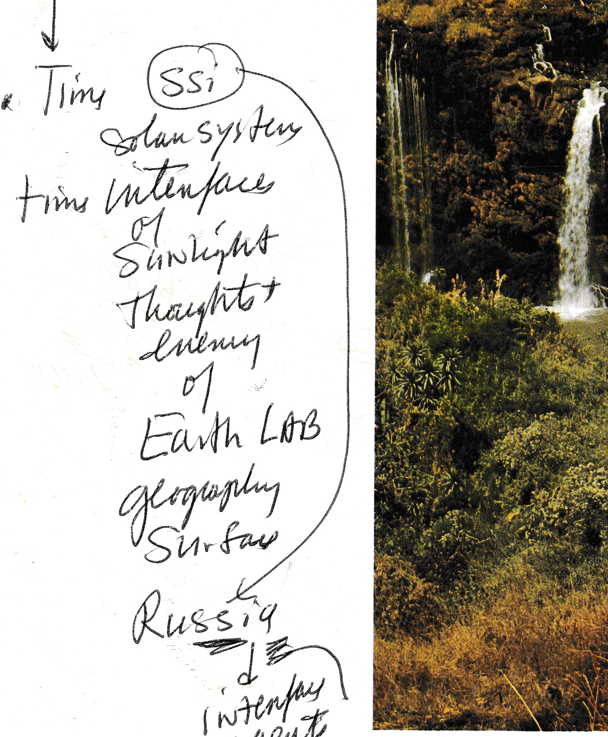 Time SSi
Solar system
time interfaces
of
Sunlight
thoughts +
energy
of
Earth LAB
geography
Surface
Russia
interface